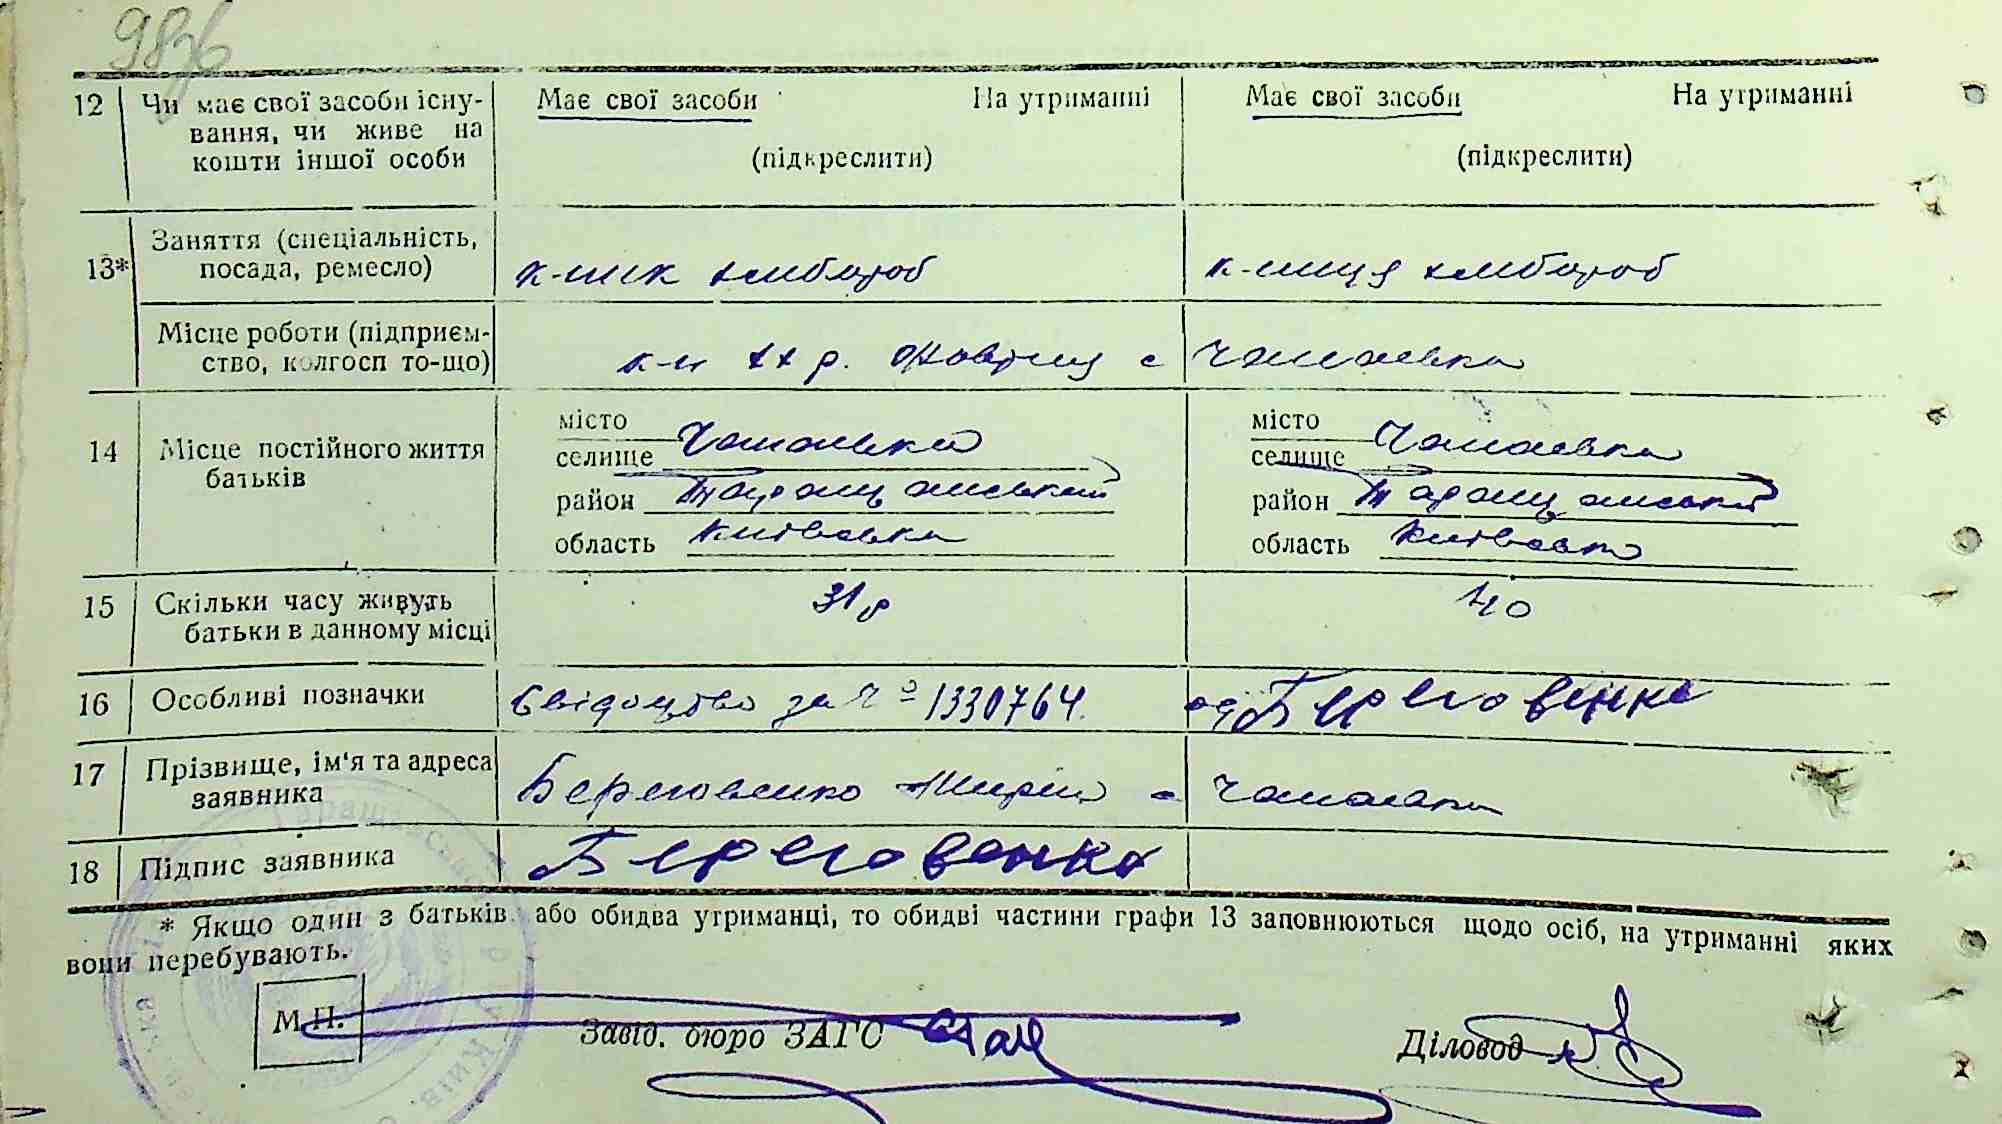 9876
12 Чи має свої засоби існу- Має свої засоби На утриманні Має свої засоби На утриманні
вання, чи живе на
кошти іншої особи (підкреслити) (підкреслити)
Заняття (спеціальність,
13* посада, ремесло) к-ник хлібороб к-ниця хлібороб
Місце роботи (підприєм-
ство, колгосп то-що) к-п ХХ р. Жовтня с Чапаевка
місто місто
14 Місце постійного життя селище Чапаевка селище Чапаевка
батьків район Таращанський район Таращанський
область Київська область Київська
15 Скільки часу живуть 31 р 40
батьки в данному місці
16 Особливі позначки Свідоцтво за № 1330764. Береговенко
17 Прізвище, ім'я та адреса Береговенко с Чапаевка
заявника
18 Підпис заявника Береговенко
* Якщо один з батьків або обидва утриманці, то обидві частини графи 13 заповнюються щодо осіб, на утриманні яких
вони перебувають.
М.П. Завід. бюро ЗАГС Діловод